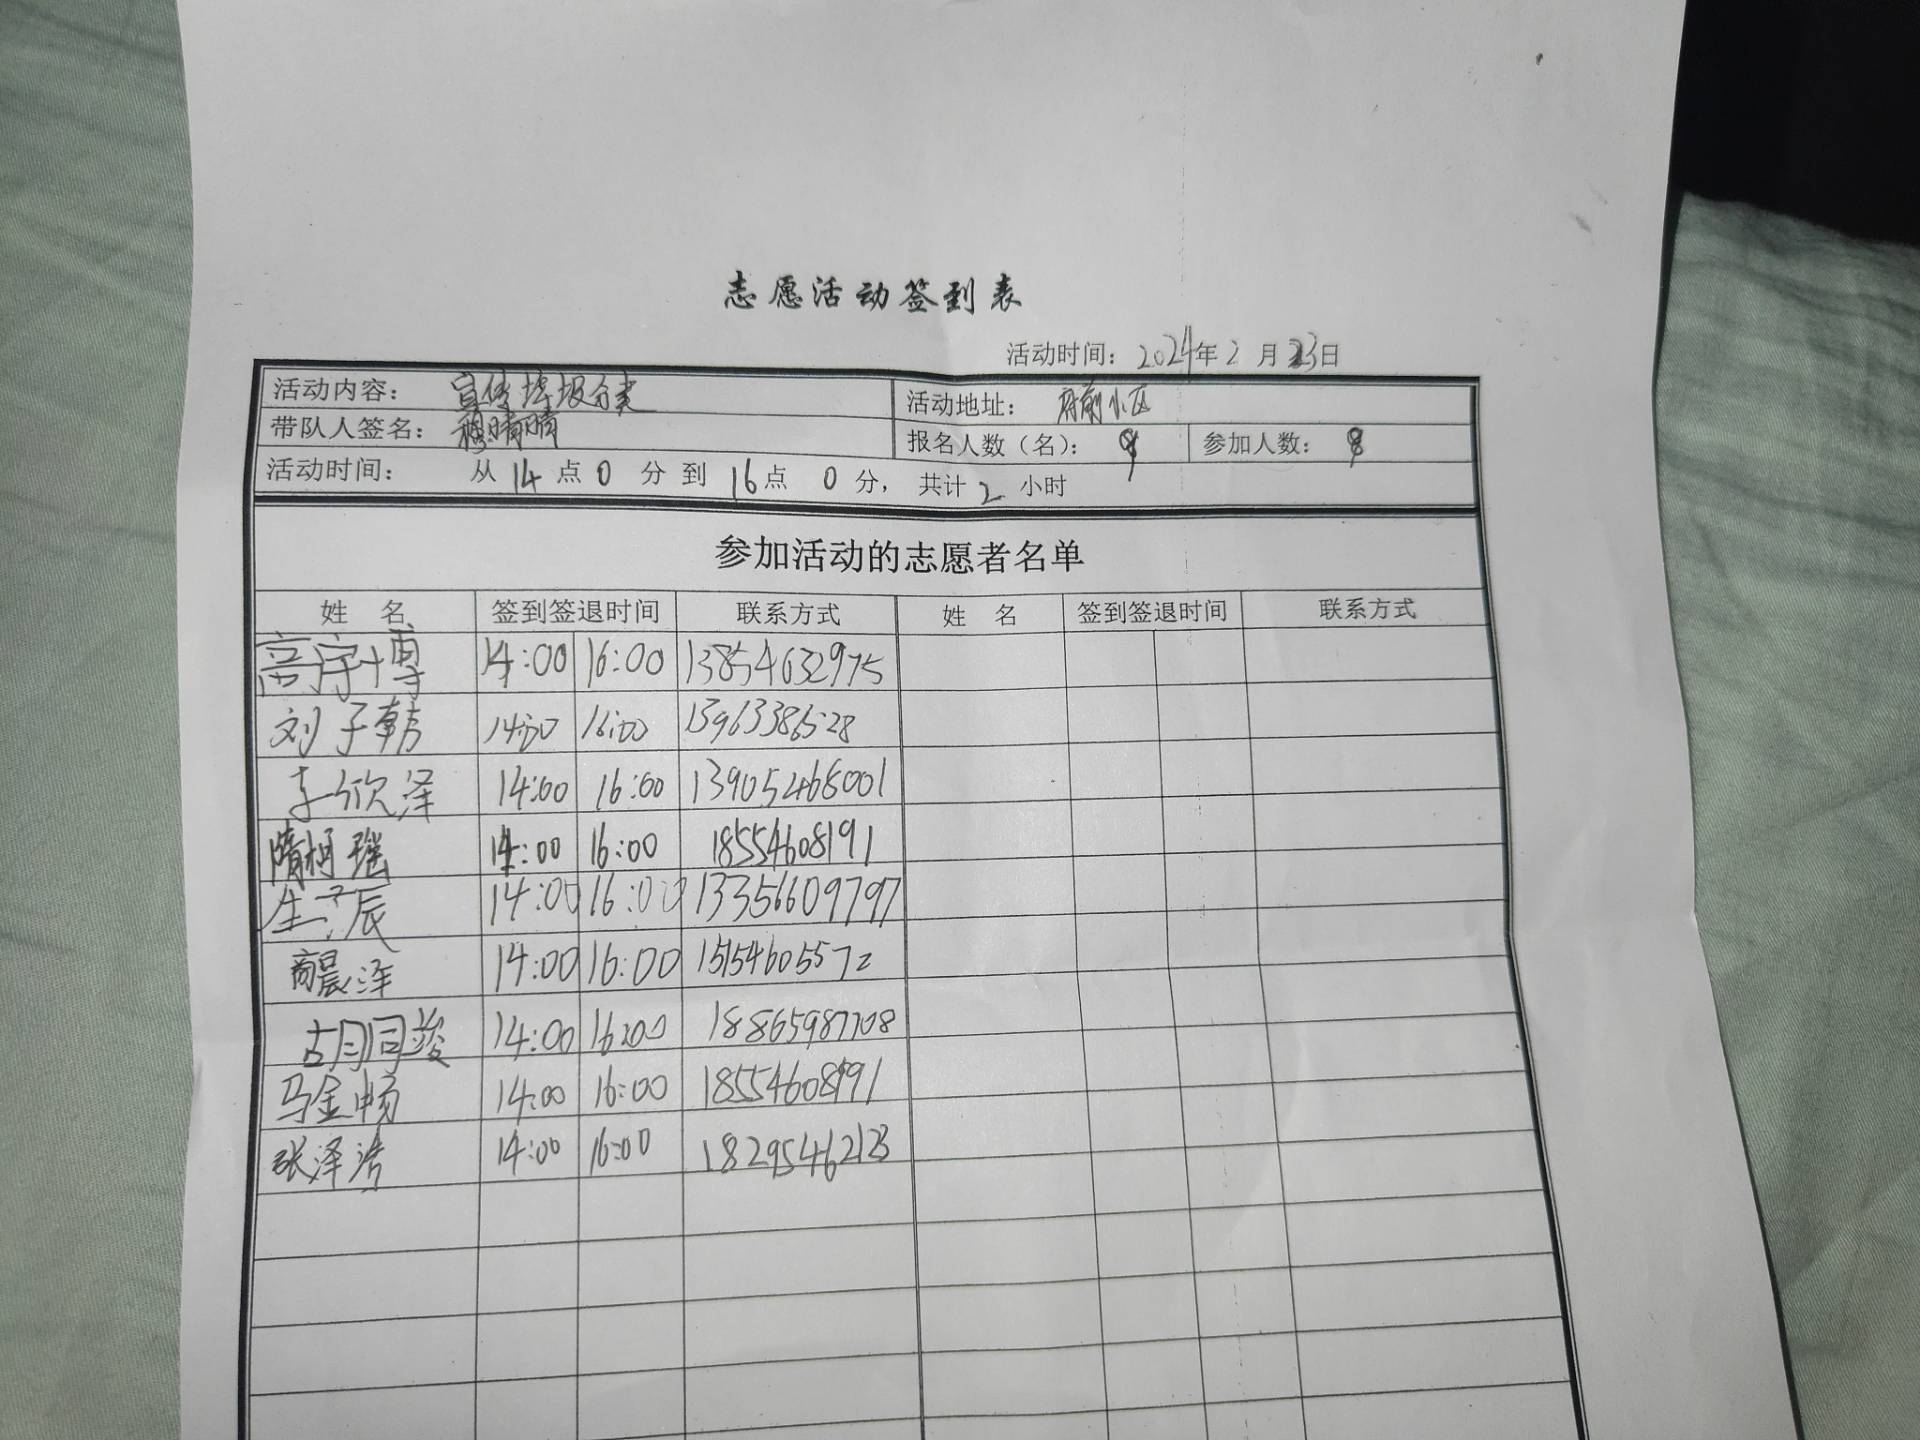 志愿活动签到表
活动时间：2024年2月23日
活动内容：宣传垃圾分类 活动地址：府前小区
带队人签名：穆晴晴 报名人数（名）：9 参加人数：9
活动时间：从14点0分到16点0分，共计2小时
参加活动的志愿者名单
姓名 签到签退时间 联系方式 姓名 签到签退时间 联系方式
高宇博 14:00 16:00 13854632975
刘子韩 14:00 16:00 13963386528
李欣泽 14:00 16:00 13905468001
隋柯瑶 14:00 16:00 18554608191
生子辰 14:00 16:00 13356609797
商晨泽 14:00 16:00 15154605572
胡同骏 14:00 16:00 18865987708
马金畅 14:00 16:00
张泽涛 14:00 16:00 18295462123